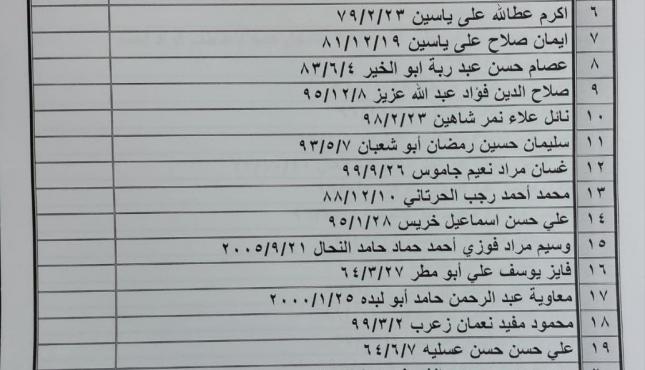 ٦ اكرم عطالله على ياسين ٧٩/٢/٢٣
٧ ايمان صلاح على ياسين ٨١/١٢/١٩
٨ عصام حسن عبد ربة ابو الخير ٨٣/٦/٤
٩ صلاح الدين فؤاد عبد الله عزيز ٩٥/١٢/٨
١٠ نائل علاء نمر شاهين ٩٨/٢/٢٣
١١ سليمان حسين رمضان أبو شعبان ٩٣/٥/٧
١٢ غسان مراد نعيم جاموس ٩٩/٩/٢٦
١٣ محمد أحمد رجب الحرتاني ٨٨/١٢/١٠
١٤ علي حسن اسماعيل خريس ٩٥/١/٢٨
١٥ وسيم مراد فوزي أحمد حماد حامد النحال ٢٠٠٥/٩/٢١
١٦ فايز يوسف علي أبو مطر ٦٤/٣/٢٧
١٧ معاوية عبد الرحمن حامد أبو لبده ٢٠٠٠/١/٢٥
١٨ محمود مفيد نعمان زعرب ٩٩/٣/٢
١٩ علي حسن حسن عسليه ٦٤/٦/٧